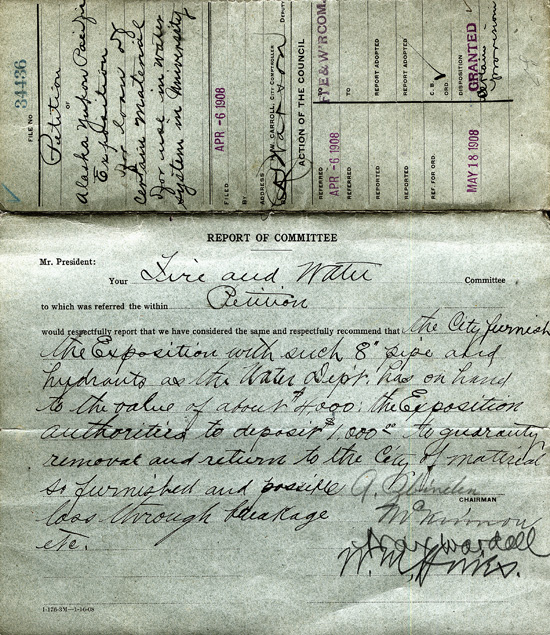 34436
FILE NO.
Petition
OF
Alaska Yukon Pacific
Exposition
for loan of
certain material
for use in water
system in University
APR -6 1908
FILED
BY
ADDRESS
W. CARROLL, CITY COMPTROLLER
DEPUTY
ACTION OF THE COUNCIL
REFERRED
APR -6 1908
TO
F I R E & W'R COM.
REFERRED
TO
REPORTED
REPORT ADOPTED
REPORTED
REPORT ADOPTED
REF FOR ORD.
C. B.
ORD.
MAY 18 1908
DISPOSITION
GRANTED
provision
REPORT OF COMMITTEE
Mr. President:
Your Fire and Water Committee
to which was referred the within Petition
would respectfully report that we have considered the same and respectfully recommend that the City furnish
the Exposition with such 8" pipe and
hydrants as the Water Dept. has on hand
to the value of about $4000: the Exposition
authorities to deposit $1,000 to guaranty
removal and return to the City of material
so furnished and possible
loss through breakage
etc.
CHAIRMAN
McKinnon
Max Wardall
W. M.
1-176-3M—1-16-08